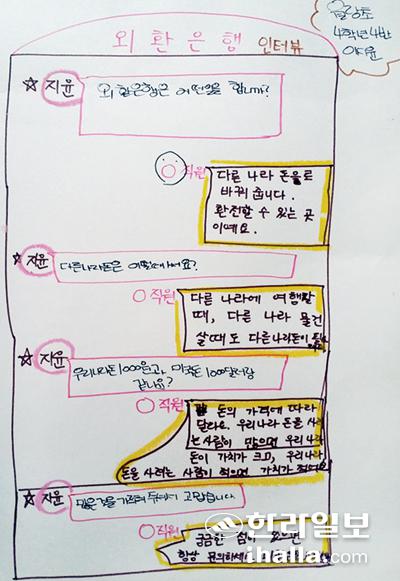 외환은행 인터뷰
4학년 4반
☆ 지윤
외환은행은 어떤일을 합니까?
직원
다른 나라 돈으로
바꿔 줍니다.
환전할 수 있는 곳
이예요.
☆ 지윤
다른나라돈은
직원
다른 나라에 여행할
때, 다른 나라 물건
살때도 다른나라돈이
☆ 지윤
우리나라돈1000원과 미국돈 100달러랑
같나요?
직원
돈의 가격에 따라
달라요. 우리나라 돈을 사
는사람이 많으면 우리나라
돈이 가치가 크고, 우리나라
돈을 사려는 사람이 적으면 가치가 적어요
☆ 지윤
고맙습니다
직원
궁금한 점이 있으면
항상 문의하세요
한라일보
ihalla.com